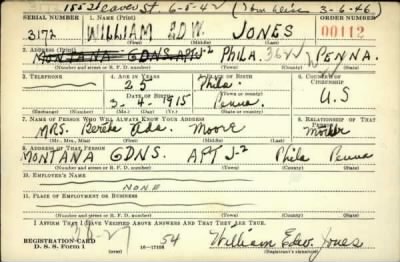 1552 leaver St 6-5-42 3-6-46
SERIAL NUMBER 1. NAME (Print) ORDER NUMBER
3172 WILLIAM EDW. JONES 00112
(First) (Middle) (Last)
2. ADDRESS (Print)
MONTANA GDNS. APT J-2 PHILA. PENNA.
(Number and street or R. F. D. number) (Town) (County) (State)
3. TELEPHONE 4. AGE IN YEARS 5. PLACE OF BIRTH 6. COUNTRY OF CITIZENSHIP
25 Phila.
DATE OF BIRTH (Town or county)
3-4-1915 Penna. U.S
(Exchange) (Number) (Mo.) (Day) (Yr.) (State or country)
7. NAME OF PERSON WHO WILL ALWAYS KNOW YOUR ADDRESS 8. RELATIONSHIP OF THAT PERSON
MRS. Ada. Moore Mother
(Mr., Mrs., Miss) (First) (Middle) (Last)
9. ADDRESS OF THAT PERSON
MONTANA GDNS. APT J-2 Phila Penna
(Number and street or R. F. D. number) (Town) (County) (State)
10. EMPLOYER'S NAME
NONE
11. PLACE OF EMPLOYMENT OR BUSINESS
(Number and street or R. F. D. number) (Town) (County) (State)
I AFFIRM THAT I HAVE VERIFIED ABOVE ANSWERS AND THAT THEY ARE TRUE.
REGISTRATION CARD
D. S. S. Form 1 16-17105 54 William Edw. Jones
(Registrant's signature)